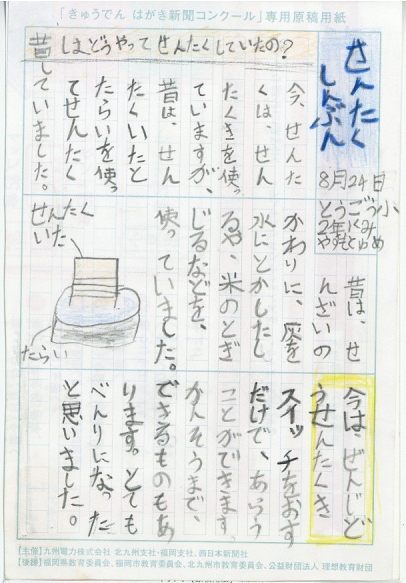 「きゅうでん はがき新聞コンクール」専用原稿用紙
せんたく
しんぶん
8月24日
とうごう小
2年1くみ
昔はどうやってせんたくしていたの?
今、せんた
くは、せん
たくきを使っ
ていますが、
昔は、せん
たくいたと
たらいを使っ
てせんたく
していました。
昔は、せ
んざいの
かわりに、灰を
水にとかしたし
るや、米のとぎ
じるなどを、
使っていました。
せんたく
いた
たらい
今は、ぜんじど
うせんたくき
スイッチをおす
だけで、あらう
ことができます、
かんそうまで、
できるものもあ
ります。とても
べんりになった
と思いました。
【主催】九州電力株式会社 北九州支社・福岡支社、西日本新聞社
【後援】福岡県教育委員会、福岡市教育委員会、北九州市教育委員会、公益財団法人 理想教育財団